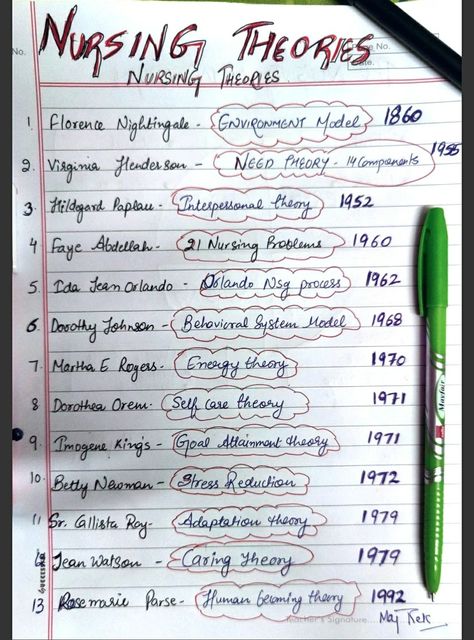 No.
NURSING THEORIES
No.
Date.
NURSING THEORIES
1. Florence Nightingale - ENVIRONMENT Model 1860
2. Virginia Henderson - NEED THEORY - 14 Components 1955
3. Hildegard Paplau - Interpersonal theory 1952
4 Faye Abdellah - 21 Nursing Problems 1960
5. Ida Jean Orlando - Orlando Nsg process 1962
6. Dorothy Johnson - Behavioral System Model 1968
7. Martha E Rogers - Energy theory 1970
8 Dorothea Orem - Self care theory 1971
9. Imogene King's - Goal Attainment theory 1971
10. Betty Newman - Stress Reduction 1972
11 Sr. Callista Roy - Adaptation theory 1979
12 Jean Watson - Caring theory 1979
13 Rosemarie Parse - Human becoming theory 1992
Teacher's Signature
Mayfair